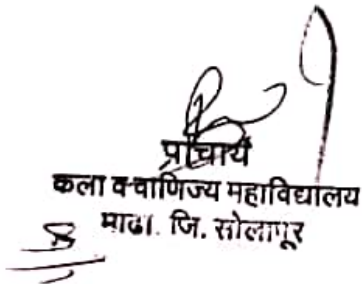 प्राचार्य
कला व वाणिज्य महाविद्यालय
माढा. जि. सोलापूर